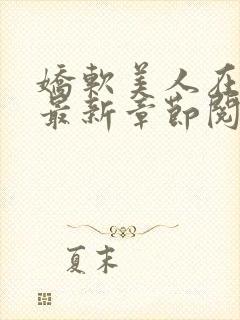 嬌軟美人在
最新章節閱
夏末